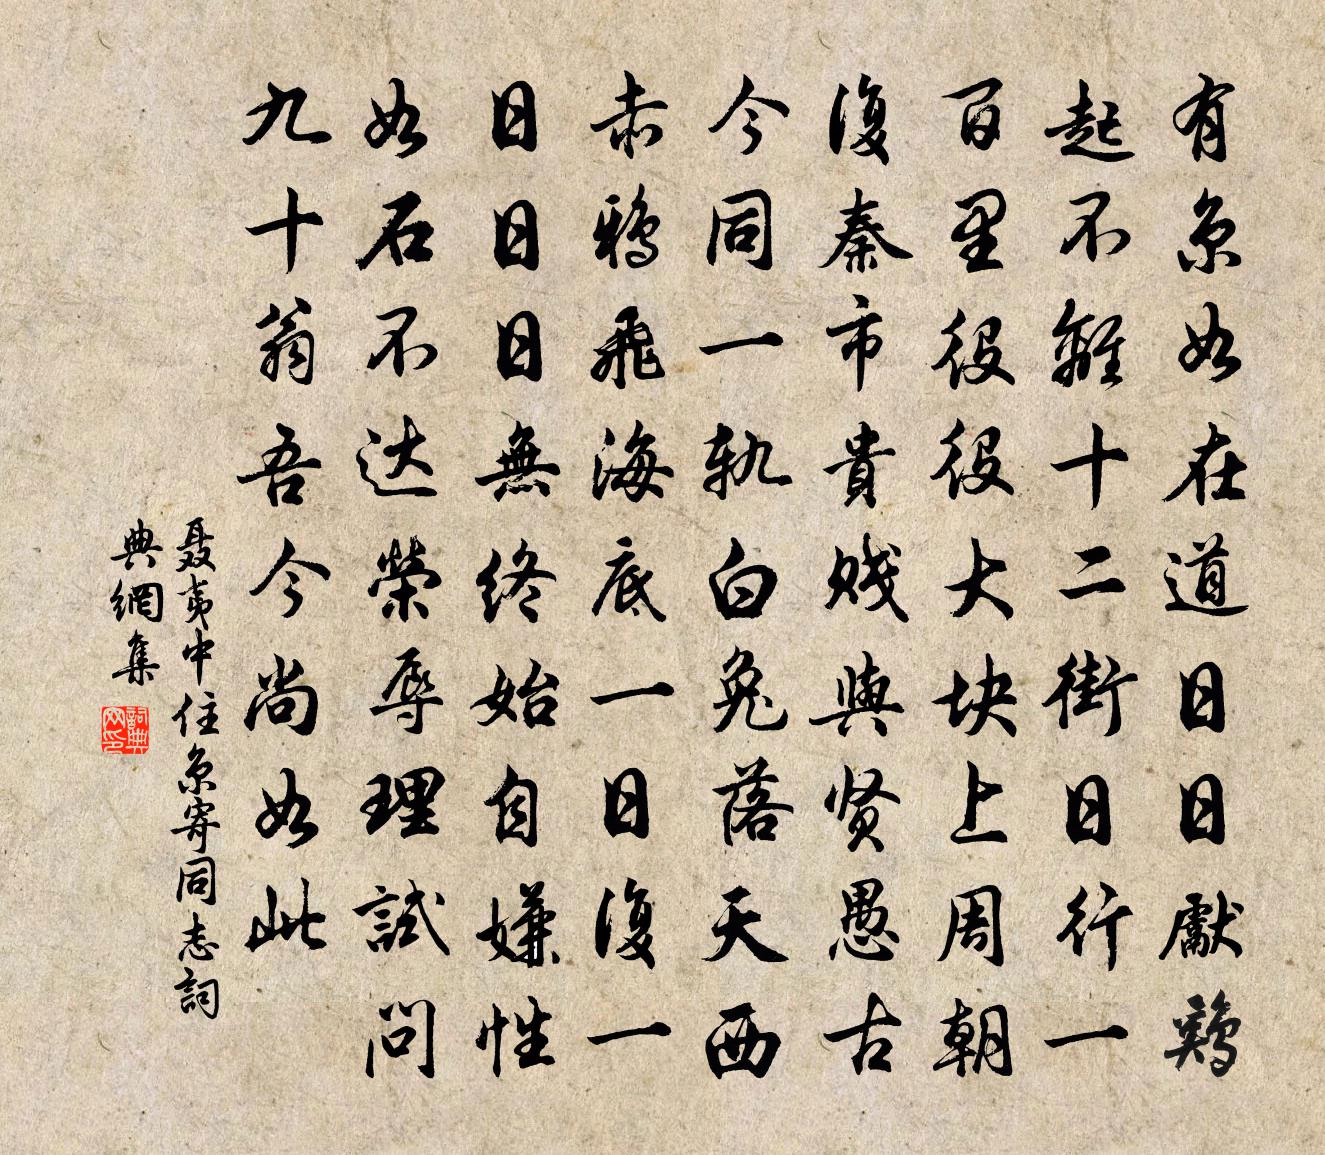 有京如在道日日獻鷄
起不離十二街日行一
百里役役大块上周朝
復秦市貴賤與贤愚古
今同一軌白兔落天西
赤鴉飛海底一日復一
日日日無終始自嫌性
如石不达榮辱理試問
九十翁吾今尚如此
聂夷中住京寄同志詞
典網集
詞典网印